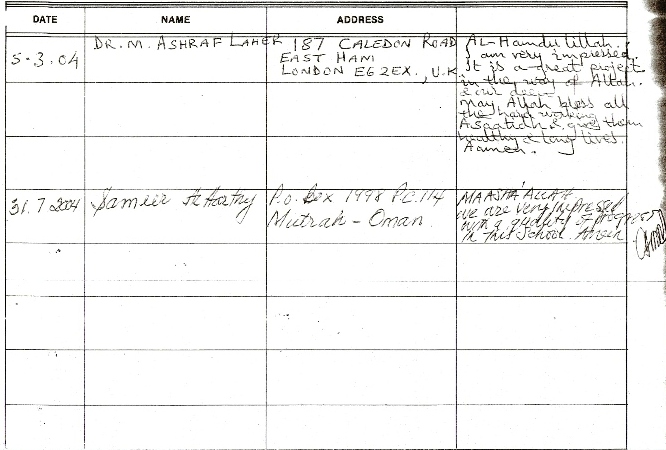 DATE NAME ADDRESS
5-3.04 DR. M. ASHRAF LAHER 187 CALEDON ROAD
EAST HAM
LONDON E6 2EX., U.K
AL-Hamdulillah.
I am very impressed.
It is a great project
in the way of Allah.
& our deen
May Allah bless all
the hard working
& give them
healthy & long lives.
Aameen.
31.7 2004 Sameer P.o. Box 1998 P.C. 114
Mutrah - Oman
MAASHA'ALLAH
we are very impressed
with a quality of
in this School. Ameen